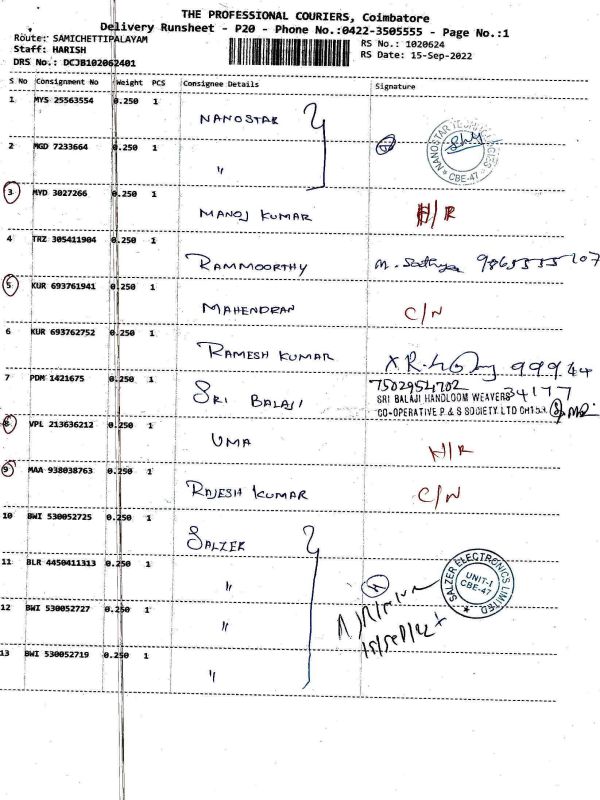 THE PROFESSIONAL COURIERS, Coimbatore
Delivery Runsheet - P20 - Phone No.:0422-3505555 - Page No.:1
Route: SAMICHETTIPALAYAM
RS No.: 1020624
Staff: HARISH
RS Date: 15-Sep-2022
DRS No.: DCJB102062401
S No Consignment No Weight PCS Consignee Details Signature
1 MYS 25563554 0.250 1 NANOSTAR
NANOSTAR TECHNOLOGIES * CBE-47 *
2 MGD 7233664 0.250 1 "
3 MYD 3027266 0.250 1 MANOJ KUMAR H/R
4 TRZ 305411904 0.250 1 RAMMOORTHY M. Sathya
5 KUR 693761941 0.250 1 MAHENDRAN C/N
6 KUR 693762752 0.250 1 RAMESH KUMAR 99944
34177
7 PDM 1421675 0.250 1 SRI BALAJI 7502954702
SRI BALAJI HANDLOOM WEAVERS
CO-OPERATIVE P & S SOCIETY LTD
8 VPL 213636212 0.250 1 UMA H/R
9 MAA 938038763 0.250 1 RAJESH KUMAR C/N
10 BWI 530052725 0.250 1 SALZER
11 BLR 4450411313 0.250 1 "
SALZER ELECTRONICS LIMITED * UNIT-I CBE-47
12 BWI 530052727 0.250 1 "
13 BWI 530052719 0.250 1 "